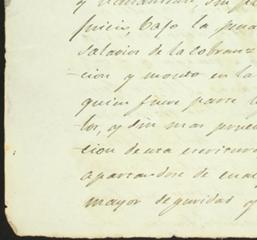 juicio, bajo la pena
salarios de la cobranz
cion y monto en la
quien fuere parte l
los, y sin mas prue
cion de esa escritura
apartandose de cual
mayor seguridad y